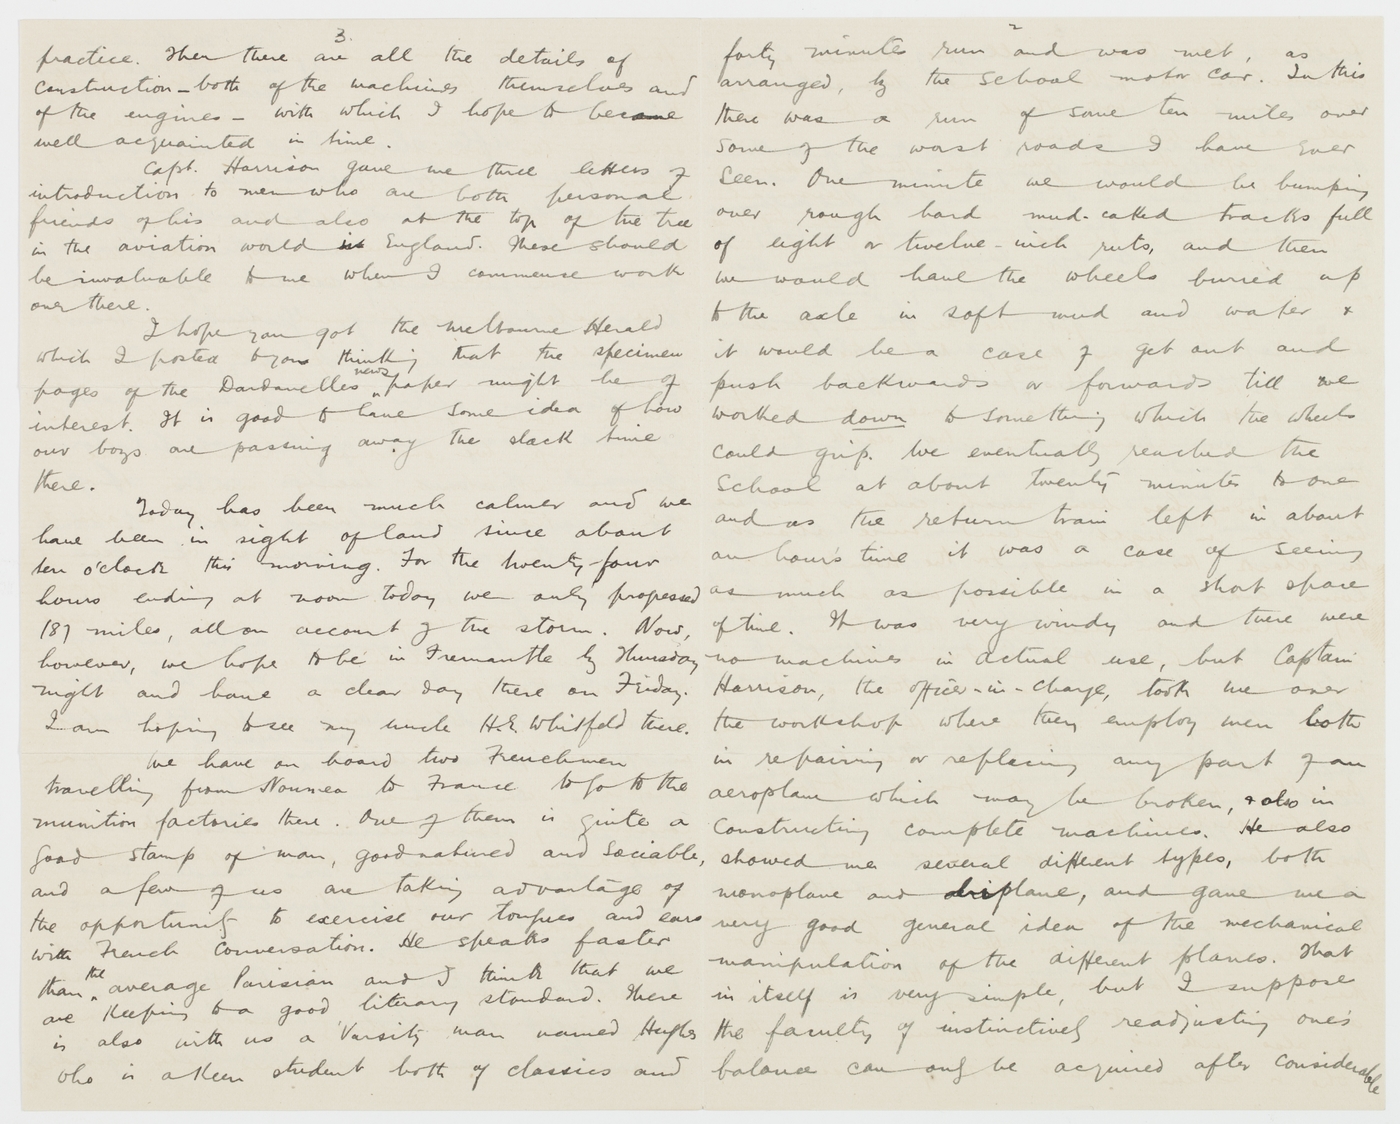 2
forty minutes run and was met, as
arranged, by the school motor car. In this
there was a run of some ten miles over
some of the worst roads I have ever
seen. One minute we would be bumping
over rough hard mud-caked tracks full
of eight or twelve-inch ruts, and then
we would have the wheels buried up
to the axle in soft mud and water &
it would be a case of get out and
push backwards or forwards till we
worked down to something which the wheels
could grip. We eventually reached the
School at about twenty minutes to one
and as the return train left in about
an hour's time it was a case of seeing
as much as possible in a short space
of time. It was very windy and there were
no machines in actual use, but Captain
Harrison, the officer-in-charge, took me over
the workshop where they employ men both
in repairing or replacing any part of an
aeroplane which may be broken, & also in
constructing complete machines. He also
showed me several different types, both
monoplane and biplane, and gave me a
very good general idea of the mechanical
manipulation of the different planes. That
in itself is very simple, but I suppose
the faculty of instinctively readjusting one's
balance can only be acquired after considerable
3.
practice. Then there are all the details of
construction - both of the machines themselves and
of the engines - with which I hope to become
well acquainted in time.
Capt. Harrison gave me three letters of
introduction to men who are both personal
friends of his and also at the top of the tree
in the aviation world in England. These should
be invaluable to me when I commence work
over there.
I hope you got the Melbourne Herald
which I posted to you thinking that the specimen
pages of the Dardanelles newspaper might be of
interest. It is good to have some idea of how
our boys are passing away the slack time
there.
Today has been much calmer and we
have been in sight of land since about
ten o'clock this morning. For the twenty-four
hours ending at noon today we only progressed
187 miles, all on account of the storm. Now,
however, we hope to be in Fremantle by Thursday
night and have a clear day there on Friday.
I am hoping to see my uncle H.E. Whitfeld there.
We have on board two Frenchmen
travelling from Noumea to France to go to the
munition factories there. One of them is quite a
good stamp of man, goodnatured and sociable,
and a few of us are taking advantage of
the opportunity to exercise our tongues and ears
with French conversation. He speaks faster
than the average Parisian and I think that we
are keeping to a good literary standard. There
is also with us a Varsity man named Hughes
who is a keen student both of classics and